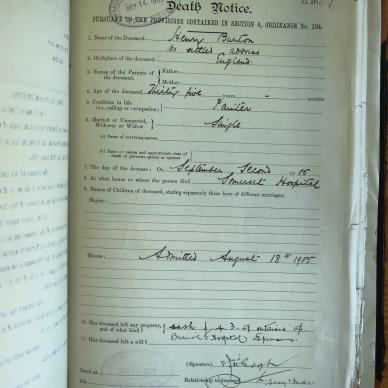 (C. 571.)
SEP 14 1905
Death Notice.
PURSUANT TO THE PROVISIONS CONTAINED IN SECTION 9, ORDINANCE No. 104.
1. Name of the Deceased Henry Burton
No settled address
2. Birthplace of the deceased England.
3. Names of the Parents of the deceased Father
Mother
4. Age of the deceased Thirty five years - months
5. Condition in life Painter
(i.e., calling or occupation)
6. Married or Unmarried, Single
Widower or Widow
(a) Name of surviving spouse.
(b) Name or names and approximate date of
death of previous spouse or spouses
7. The day of the decease: On September Second 1905
8. At what house or where the person died Somerset Hospital
9. Names of Children of deceased, stating separately those born of different marriages.
Majors:
Minors: Admitted August 18th 1905
10. Has deceased left any property, cash £4.3.
and of what kind? Burial Hospital Expenses
11. Has deceased left a will?
(Signature)
Dated at
Relationship to deceased